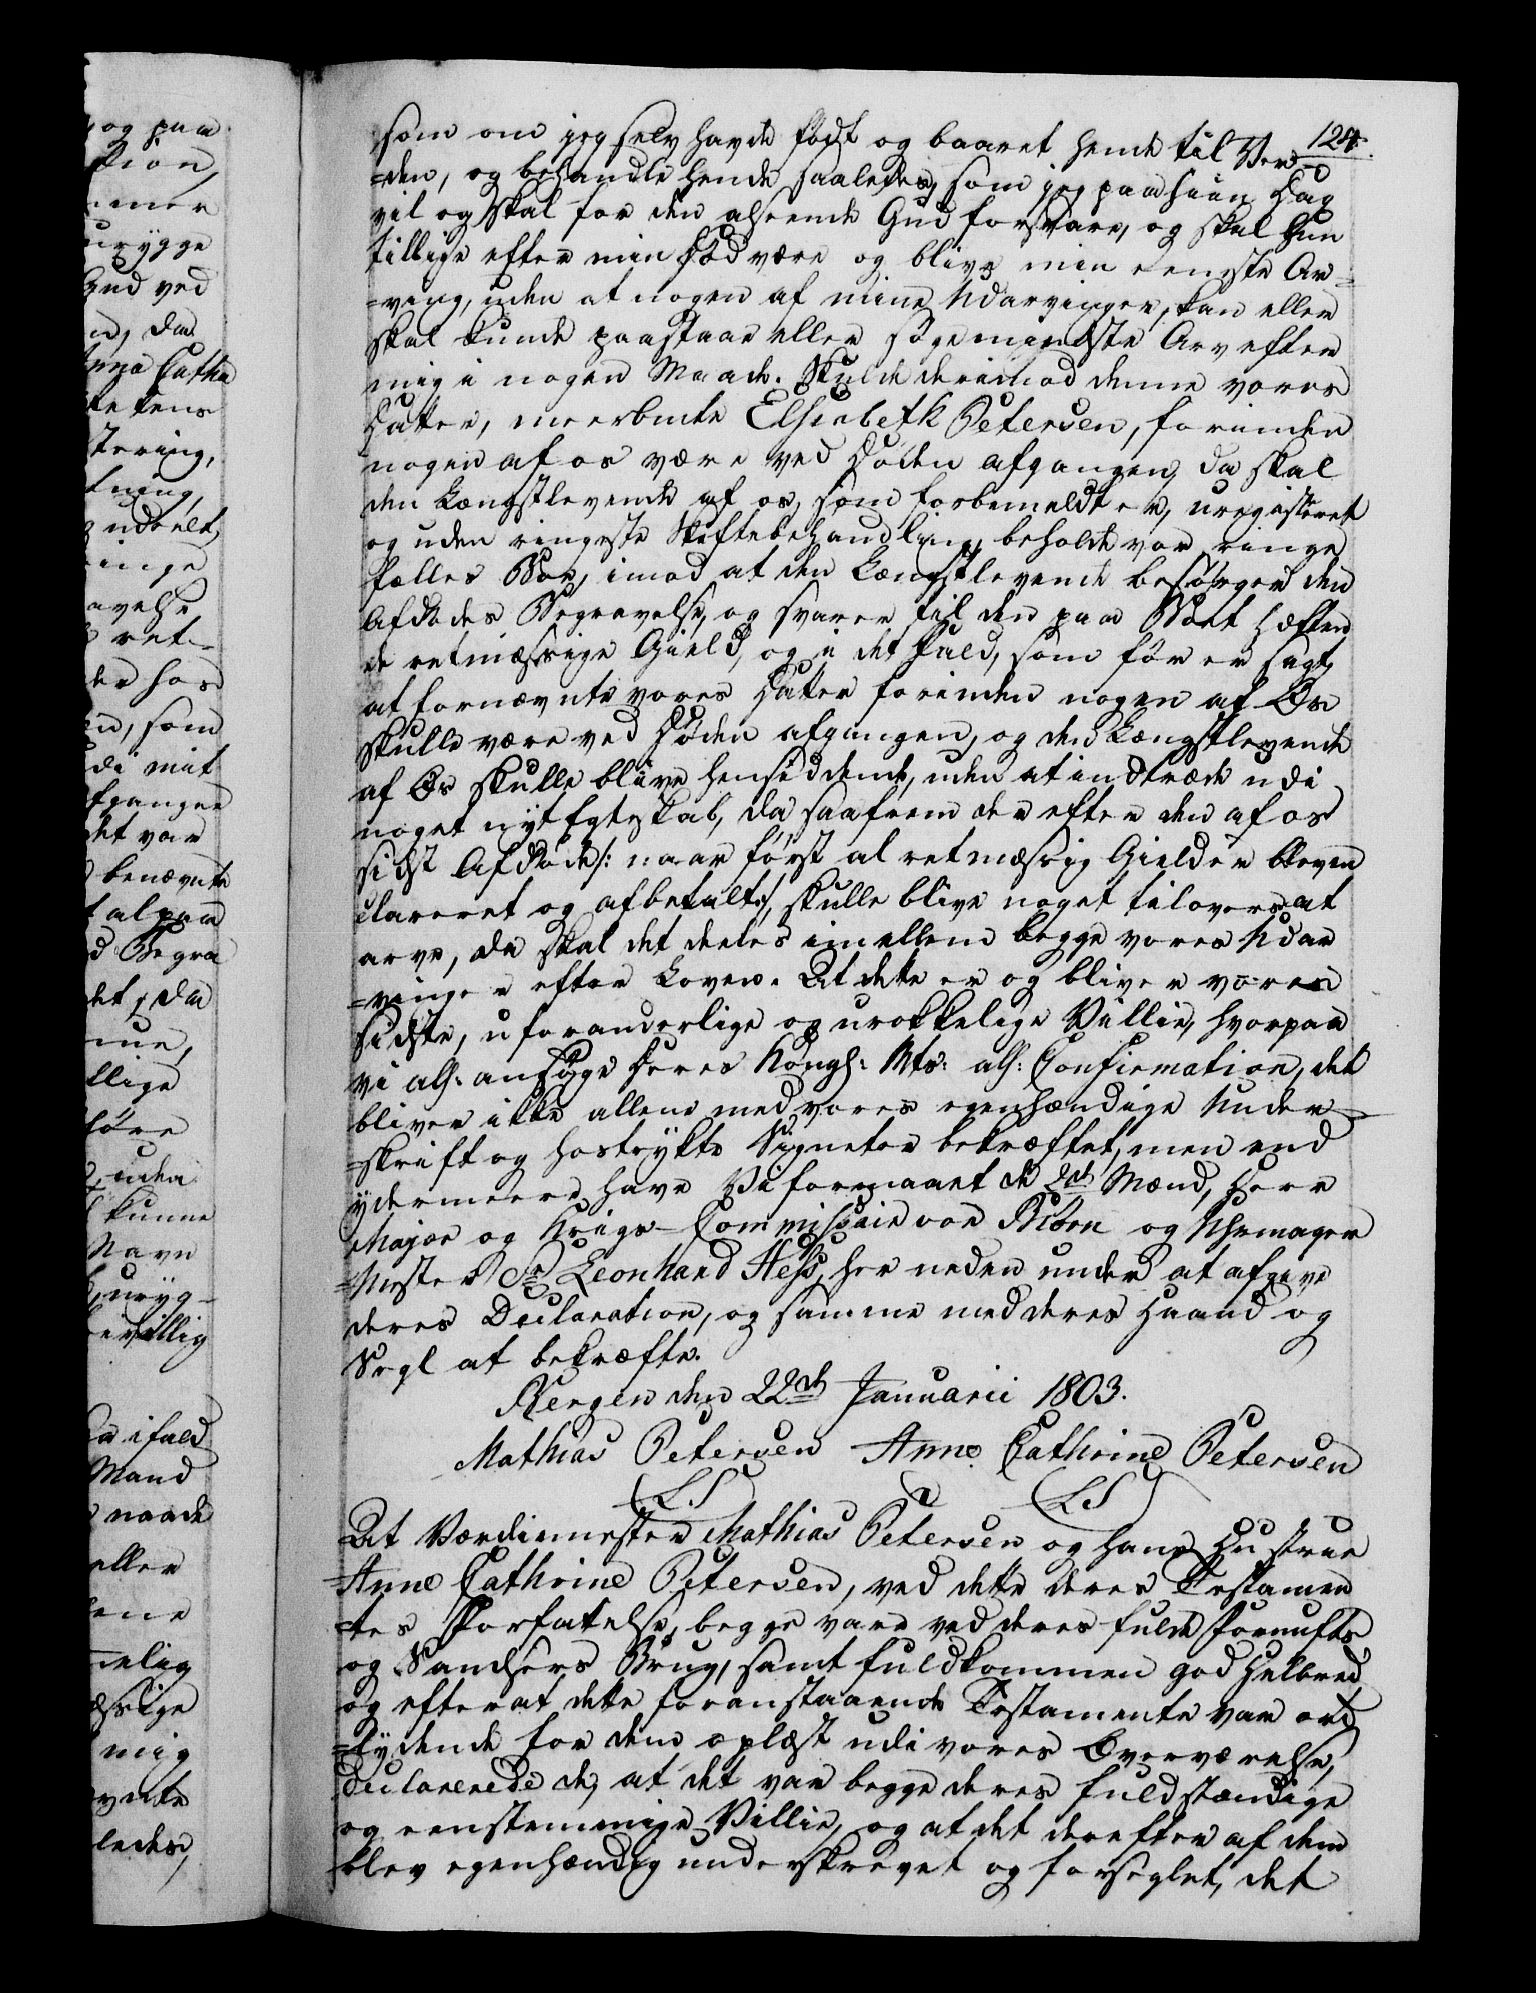 og paa
ction,
urygge
ved
n, da
Anna Catha
tering,
tning,
udeelt
ringe
avelse
ret-
der hos
en, som
di mit
fganger
det var
benævnte
t al paa
d Begra
det, da
llige
føre
uden
kunne
Navn
uryg-
villig
ifald
Mand
naade
eller
nelig
æssige
mig
ledes,
124.
som om jeg selv havde født og baaret hende til Ver-
=den, og behandle hende saaledes, som jeg paa hiin Dag
vil og skal for den alseende Gud forsvare, og skal hun
tillige efter min Død være og blive min eengste Ar=
=ving, uden at nogen af mine Udarvinger, kan eller
skal kunde paastaae eller søge mindste Arv efter
mig i nogen Maade. Skulde derimod denne vores
Datter, meerbemte Elsebeth Petersen, forinden
nogen af os være ved Døden afgangen, da skal
den Længstlevende af os, som forbemeldt er, uregisteret
og uden ringeste Skiftebehandling, beholde vor ringe
fælles Boe, imod at den Længstlevende besørger den
Afdødes Begravelse, og svarer til den paa Boet hæften
de retmæssige Gield, og i det fald, som før er sagt,
at fornævnte vores Datter forinden nogen af Os
skulle være ved Døden afgangen, og den Længstlevende
af Os skulle blive hensiddende, uden at indtræde udi
noget nyt Egteskab, da saafrem der efter den af os
sidst Afdøde /: naar først al retmæssig Gield er bleven
clareret og afbetalt :/, skulle blive noget tilovers at
arve, da skal det deeles imellem begge vores Udar
=vinger efter Loven. At dette er og bliver vores
sidste, uforanderlige og urokkelige Villie, hvorpaa
vi all: ansøge Deres Kongl: Mts: all: Confirmation, det
bliver ikke allene med vores egenhændige Under
=skrift og hostrykte Signeter bekræftet, men end
ydermeere have Vi formaaet de 2de Mænd, Herr
Major og Krigs-Commissair von Bibow og Uhrmager
=Mester Sr Leonhard Hess, her neden under at afgive
deres Declaration, og samme med deres Haand og
Segl at bekræfte.
Bergen den 22de Januarii 1803.
Mathias Petersen Anne Cathrine Petersen
(L.S) (LS)
At Værdiemester Mathias Petersen og hans Hustrue
Anne Cathrine Petersen, ved dette deres Testamen
=tes Forfatelse, begge vare ved deres fulde Fornufts
og Sandsers Brug, samt fuldkommen god Helbred,
og efter at dette foranstaaende Testamente var ord
=lydende for dem oplæst udi vores Overværelse,
declarerede de, at det var begge deres fuldstændige
og eenstemmige Villie, og at det derefter af dem
blev egenhændig underskrevet og forseglet, det